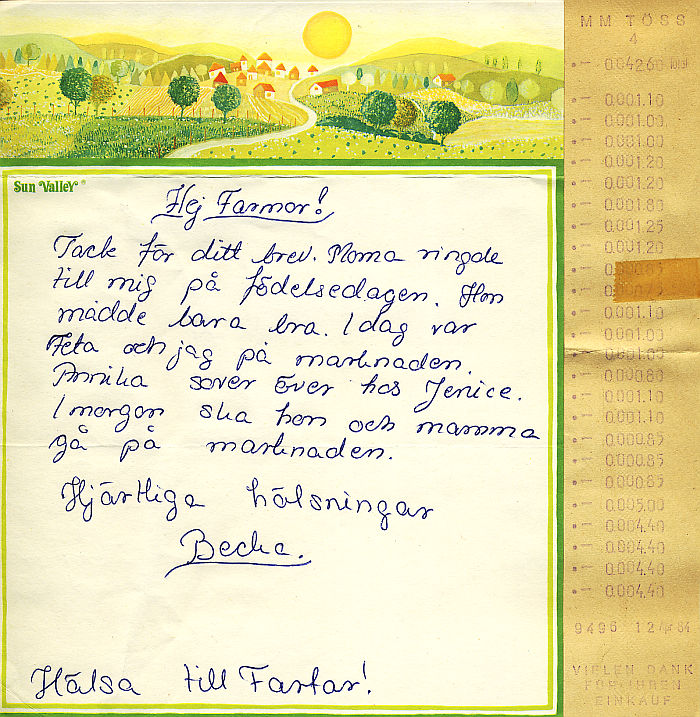 Sun Valley ®
Hej Farmor!
Tack för ditt brev. Moma ringde
till mig på födelsedagen. Hon
mådde bara bra. I dag var
och jag på marknaden.
Annika sover över hos Jenice.
I morgon ska hon och mamma
gå på marknaden.
Hjärtliga hälsningar
Becka.
Hälsa till Farfar!
MM TÖSS
4
0.001.10
0.001.00
0.001.00
0.001.20
0.001.20
0.001.80
0.001.25
0.001.20
0.000.85
0.001.10
0.001.00
0.001.00
0.000.80
0.001.10
0.001.10
0.000.85
0.000.85
0.000.85
0.005.00
0.004.40
0.004.40
0.004.40
0.004.40
9496
VIELEN DANK
FÜR IHREN
EINKAUF